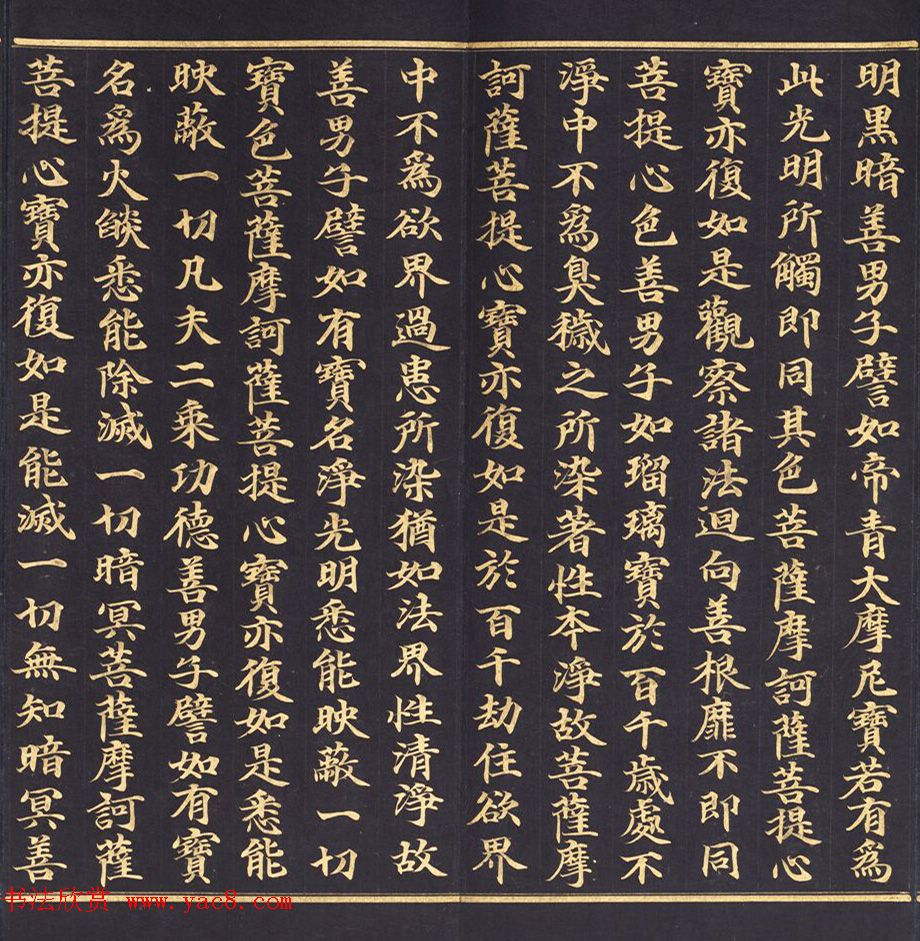 明黑暗善男子譬如帝青大摩尼寶若有為
此光明所觸即同其色菩薩摩訶薩菩提心
寶亦復如是觀察諸法迴向善根靡不即同
菩提心色善男子如瑠璃寶於百千歲處不
淨中不為臭穢之所染著性本淨故菩薩摩
訶薩菩提心寶亦復如是於百千劫住欲界
中不為欲界過患所染猶如法界性清淨故
善男子譬如有寶名淨光明悉能映蔽一切
寶色菩薩摩訶薩菩提心寶亦復如是悉能
映蔽一切凡夫二乘功德善男子譬如有寶
名為火燄悉能除滅一切暗冥菩薩摩訶薩
菩提心寶亦復如是能滅一切無知暗冥善
书法欣赏 www.yac8.com